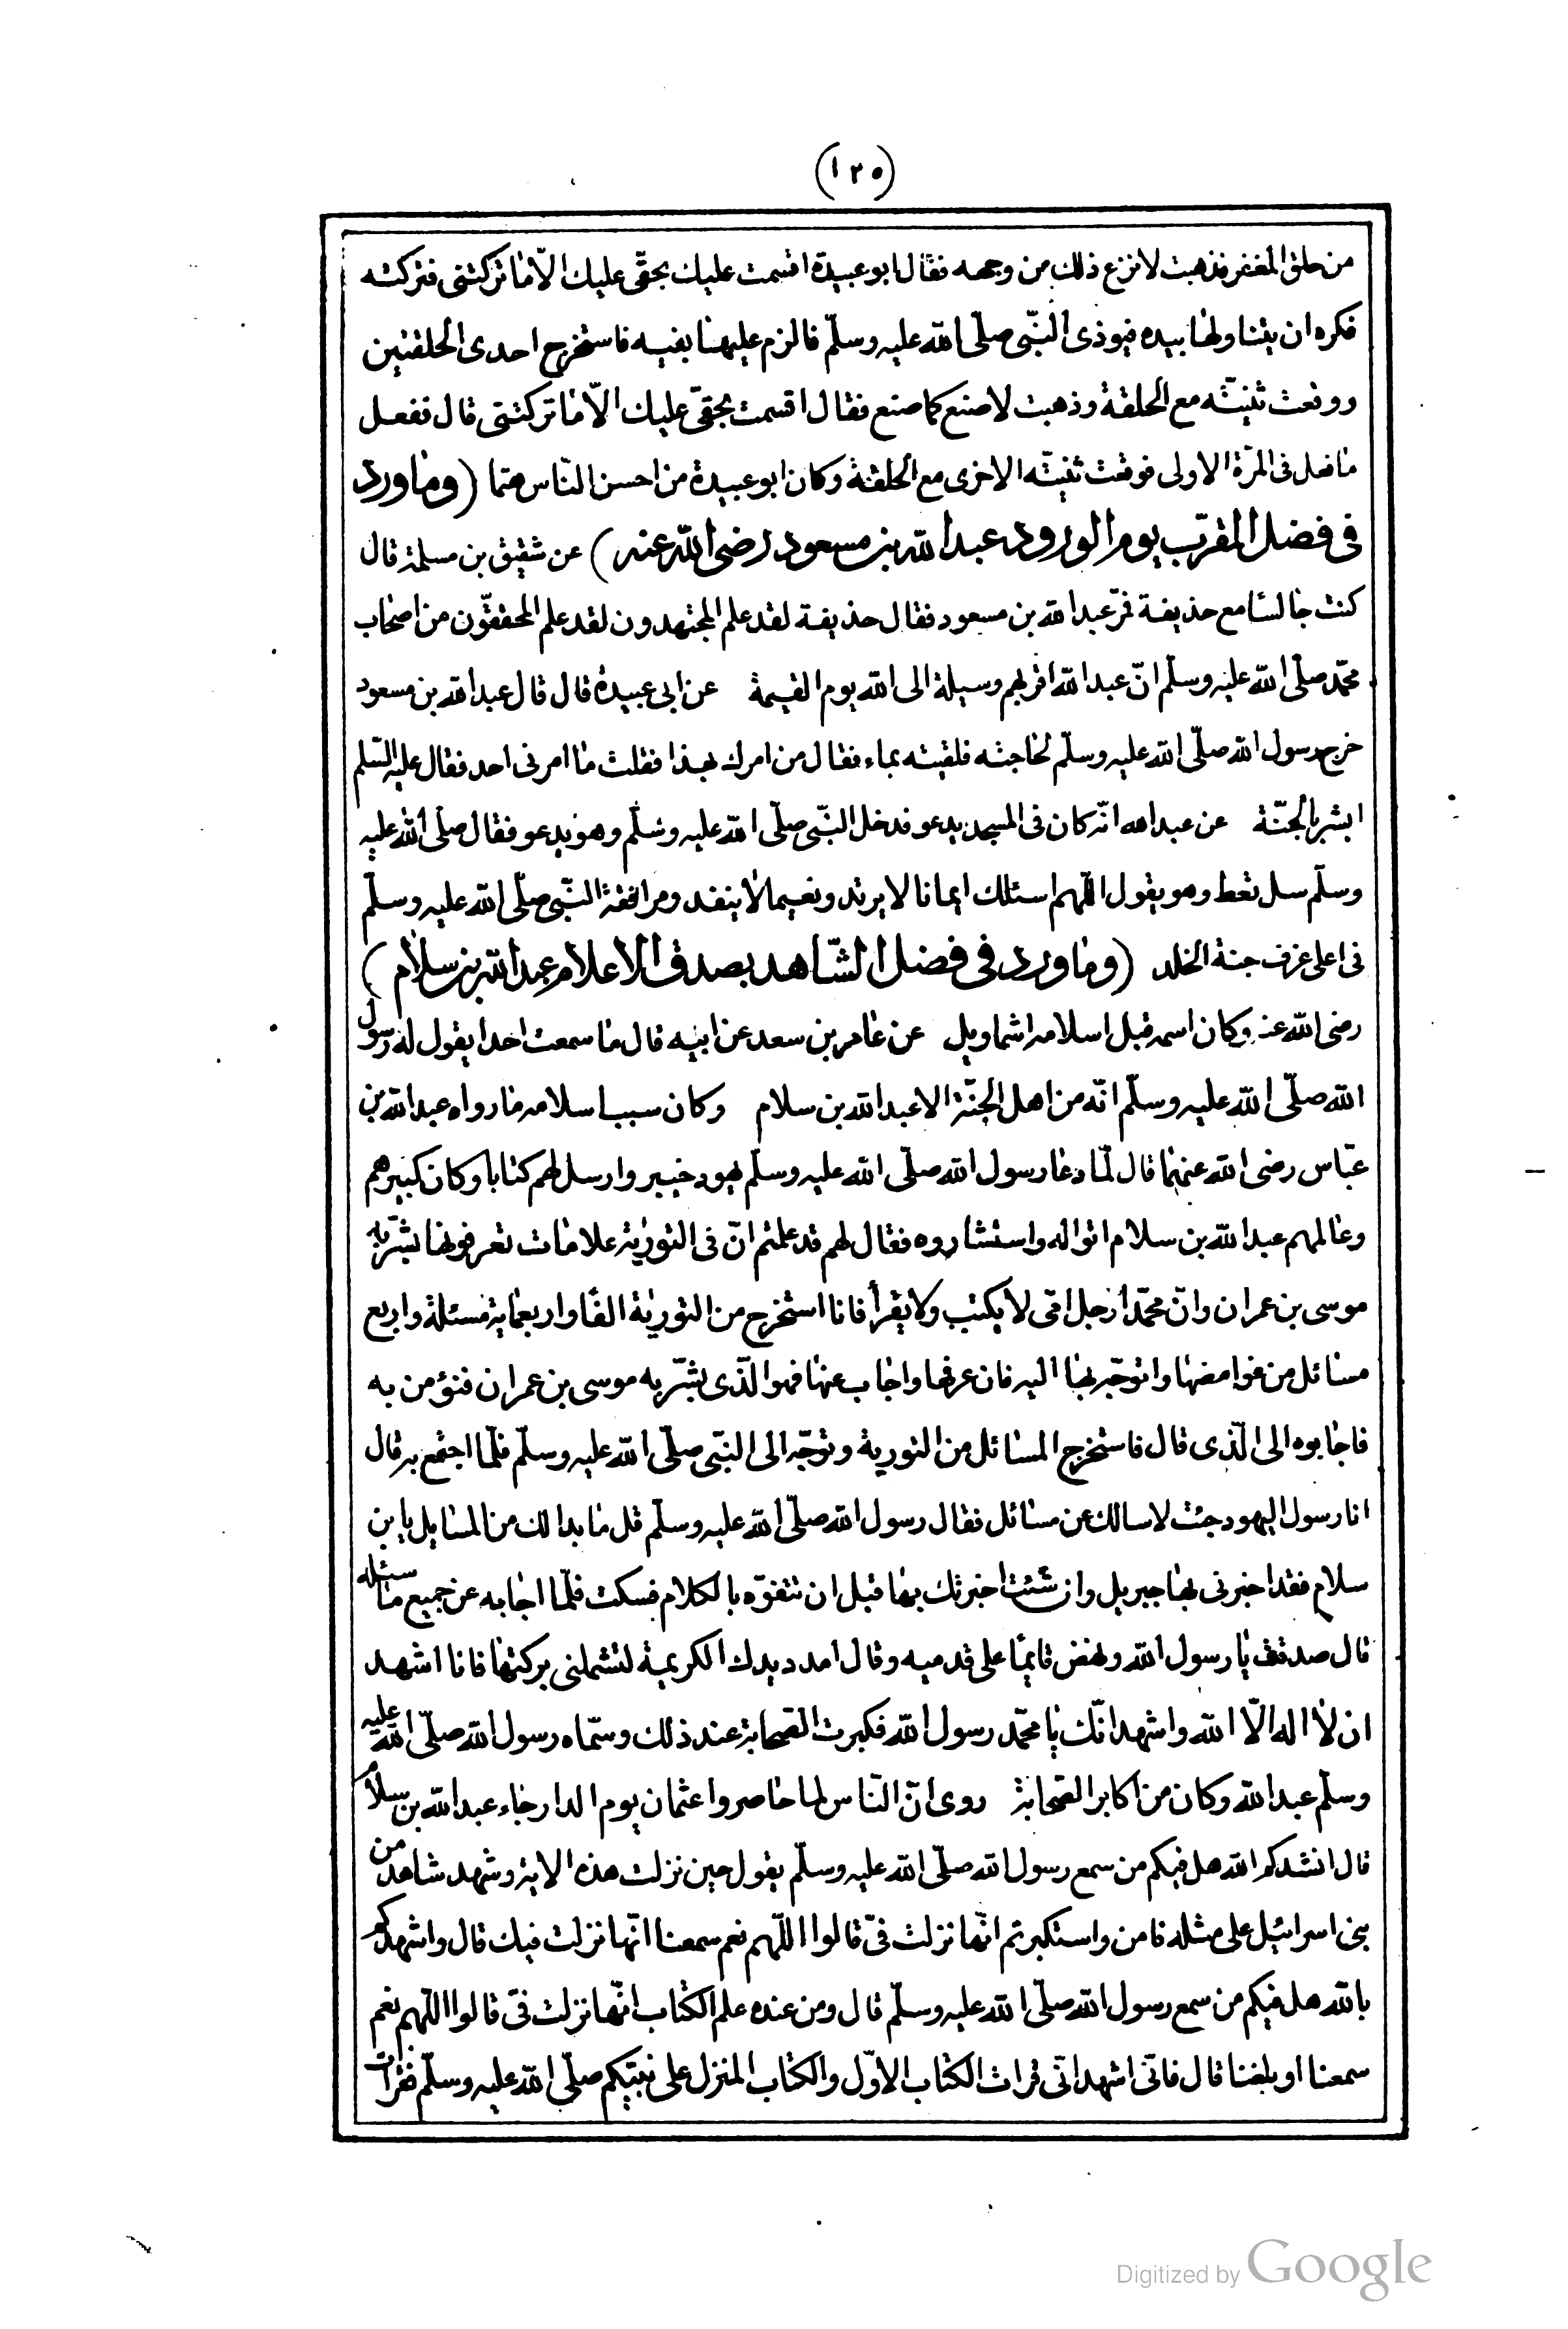 (١٢٥)
من حلق المغفر فذهبت لانزع ذلك من وجهه فقال ابو عبيدة اقسمت عليك بحقّى عليك الّا ما تركتنى فتركته
فكره ان يتناولها بيده فيوذى النّبى صلّى الله عليه وسلّم فالزم عليهما بفيه فاستخرج احدى الحلقتين
ووقعت ثنيتّه مع الحلقة وذهبت لاصنع كما صنع فقال اقسمت بحقىّ عليك الّا ما تركتنى قال ففعل
ما فعل فى المرّة الاولى فوقعت ثنيتّه الاخرى مع الحلقة وكان ابو عبيدة من احسن النّاس هتما (وما ورد
فى فضل المقرّب يوم الورود عبد الله بن مسعود رضى الله عنه) عن شقيق بن مسلمة قال
كنت جالسا مع حذيفة فمرّ عبد الله بن مسعود فقال حذيفة لقد علم المجتهدون لقد علم المحققّون من اصحاب
محمّد صلّى الله عليه وسلّم انّ عبد الله اقربهم وسيلة الى الله يوم القيمة عن ابى عبيدة قال قال عبد الله بن مسعود
خرج رسول الله صلّى الله عليه وسلّم لحاجته فلقيته بماء فقال من امرك بهذا فقلت ما امرنى احد فقال عليه السّلم
ابشر بالجنّة عن عبد الله انّه كان فى المسجد يدعو فدخل النبّى صلّى الله عليه وسلّم وهو يدعو فقال صلّى الله عليه
وسلّم سل تعط وهو يقول اللّهم اسئلك ايمانا لا يرتد ونعيما لا ينفد ومرافقة النّبى صلّى الله عليه وسلّم
فى اعلى غرف جنة الخلد (وما ورد فى فضل الشّاهد بصدق الاعلام عبد الله بن سلام)
رضى الله عنه وكان اسمه قبل اسلامه اشماويل عن عامر بن سعد عن ابيه قال ما سمعت احدا يقول له رسول
الله صلّى الله عليه وسلّم انّه من اهل الجنّة الا عبد الله بن سلام وكان سبب اسلامه ما رواه عبد الله بن
عبّاس رضى الله عنهما قال لمّا دعا رسول الله صلّى الله عليه وسلّم يهود خيبر وارسل لهم كتابا وكان كبيرهم
وعالمهم عبد الله بن سلام اتوا له واستشاروه فقال لهم قد علمتم انّ فى التورية علامات تعرفونها بشّر به
موسى بن عمران وانّ محمّدا رجل امّى لا يكتب ولا يقرأ فانا استخرج من التورية الفًا واربعماية مسئلة واربع
مسائل من غوامضها واتوجّه بها اليه فان عرفها واجاب عنها فهو الّذى بشّر به موسى بن عمران فنؤمن به
فاجابوه الى الّذى قال فاستخرج المسائل من التورية وتوجّه الى النبّى صلّى الله عليه وسلّم فلمّا اجتمع به قال
انا رسول اليهود جئت لاسالك عن مسائل فقال رسول الله صلّى الله عليه وسلّم قل ما بدا لك من المسايل يا بن
سلام فقد اخبرنى بها جبريل وان شئت اخبرتك بها قبل ان تتفوّه بالكلام فسكت فلمّا اجابه عن جميع ما سئله
قال صدقت يا رسول الله ونهض قايمًا على قدميه وقال امدد يدك الكريمة لتشملنى بركتها فانا اشهد
ان لا اله الّا الله واشهد انّك يا محمّد رسول الله فكبرت الصّحابة عند ذلك وسمّاه رسول الله صلّى الله عليه
وسلّم عبد الله وكان من اكابر الصّحابة روى انّ النّاس لما حاصروا عثمان يوم الدار جاء عبد الله بن سلام
قال انشدكم الله هل فيكم من سمع رسول الله صلّى الله عليه وسلّم يقول حين نزلت هذه الاية وشهد شاهد من
بنى اسرائيل على مثله فامن واستكبرتم انّها نزلت فىّ قالوا اللّهم نعم سمعنا انّها نزلت فيك قال واشهدكم
بالله هل فيكم من سمع رسول الله صلّى الله عليه وسلّم قال ومن عنده علم الكتاب انّها نزلت فىّ قالوا اللّهم نعم
سمعنا او بلغنا قال فانّى اشهد انّى قرات الكتاب الاوّل والكتاب المنزل على نبيّكم صلّى الله عليه وسلّم فقرات
Digitized by Google